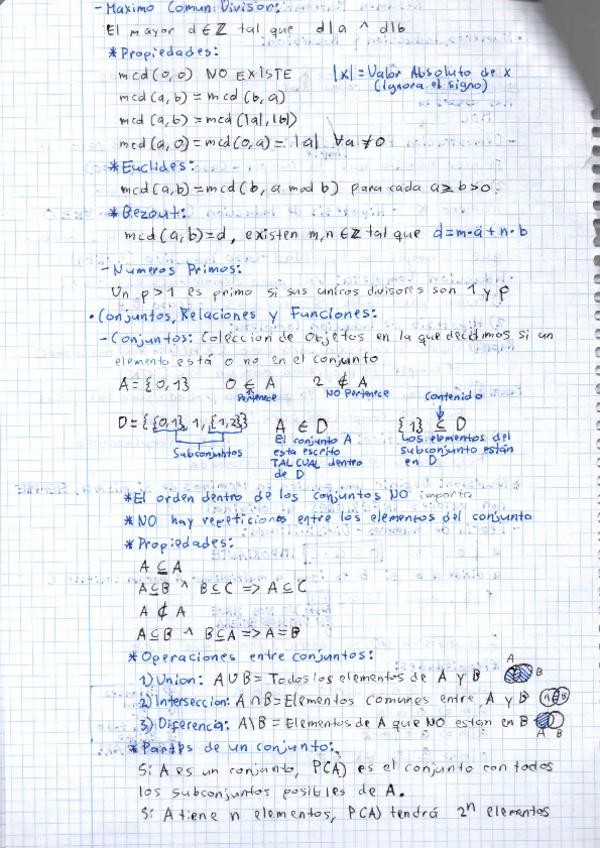 - Maximo Comun Divisor:
El mayor d ∈ Z tal que d|a ^ d|b
* Propiedades:
mcd(0,0) NO EXISTE |x| = Valor Absoluto de x
(Ignora el signo)
mcd(a,b) = mcd(b,a)
mcd(a,b) = mcd(|a|,|b|)
mcd(a,0) = mcd(0,a) = |a| ∀a ≠ 0
* Euclides:
mcd(a,b) = mcd(b, a mod b) para cada a ≥ b > 0.
* Bezout:
mcd(a,b) = d, existen m,n ∈ Z tal que d = m·a + n·b
- Numeros Primos:
Un p > 1 es primo si sus unicos divisores son 1 y p
• Conjuntos, Relaciones y Funciones:
- Conjuntos: Coleccion de Objetos en la que decidimos si un
elemento está o no en el conjunto
A = {0,1} 0 ∈ A 2 ∉ A
Pertenece NO Pertenece Contenido
D = {{0,1}, 1, {1,2}} A ∈ D {1} ⊆ D
Subconjuntos
El conjunto A
esta escrito
TAL CUAL dentro
de D
Los elementos del
subconjunto están
en D
* El orden dentro de los conjuntos NO importa
* NO hay repeticiones entre los elementos del conjunto
* Propiedades:
A ⊆ A
A ⊆ B ^ B ⊆ C => A ⊆ C
A ∉ A
A ⊆ B ^ B ⊆ A => A = B
* Operaciones entre conjuntos:
1) Union: A ∪ B = Todos los elementos de A y B A B
2) Interseccion: A ∩ B = Elementos comunes entre A y B A B
3) Diferencia: A\B = Elementos de A que NO estan en B A B
* Partes de un conjunto:
Si A es un conjunto, P(A) es el conjunto con todos
los subconjuntos posibles de A.
Si A tiene n elementos, P(A) tendrá 2ⁿ elementos